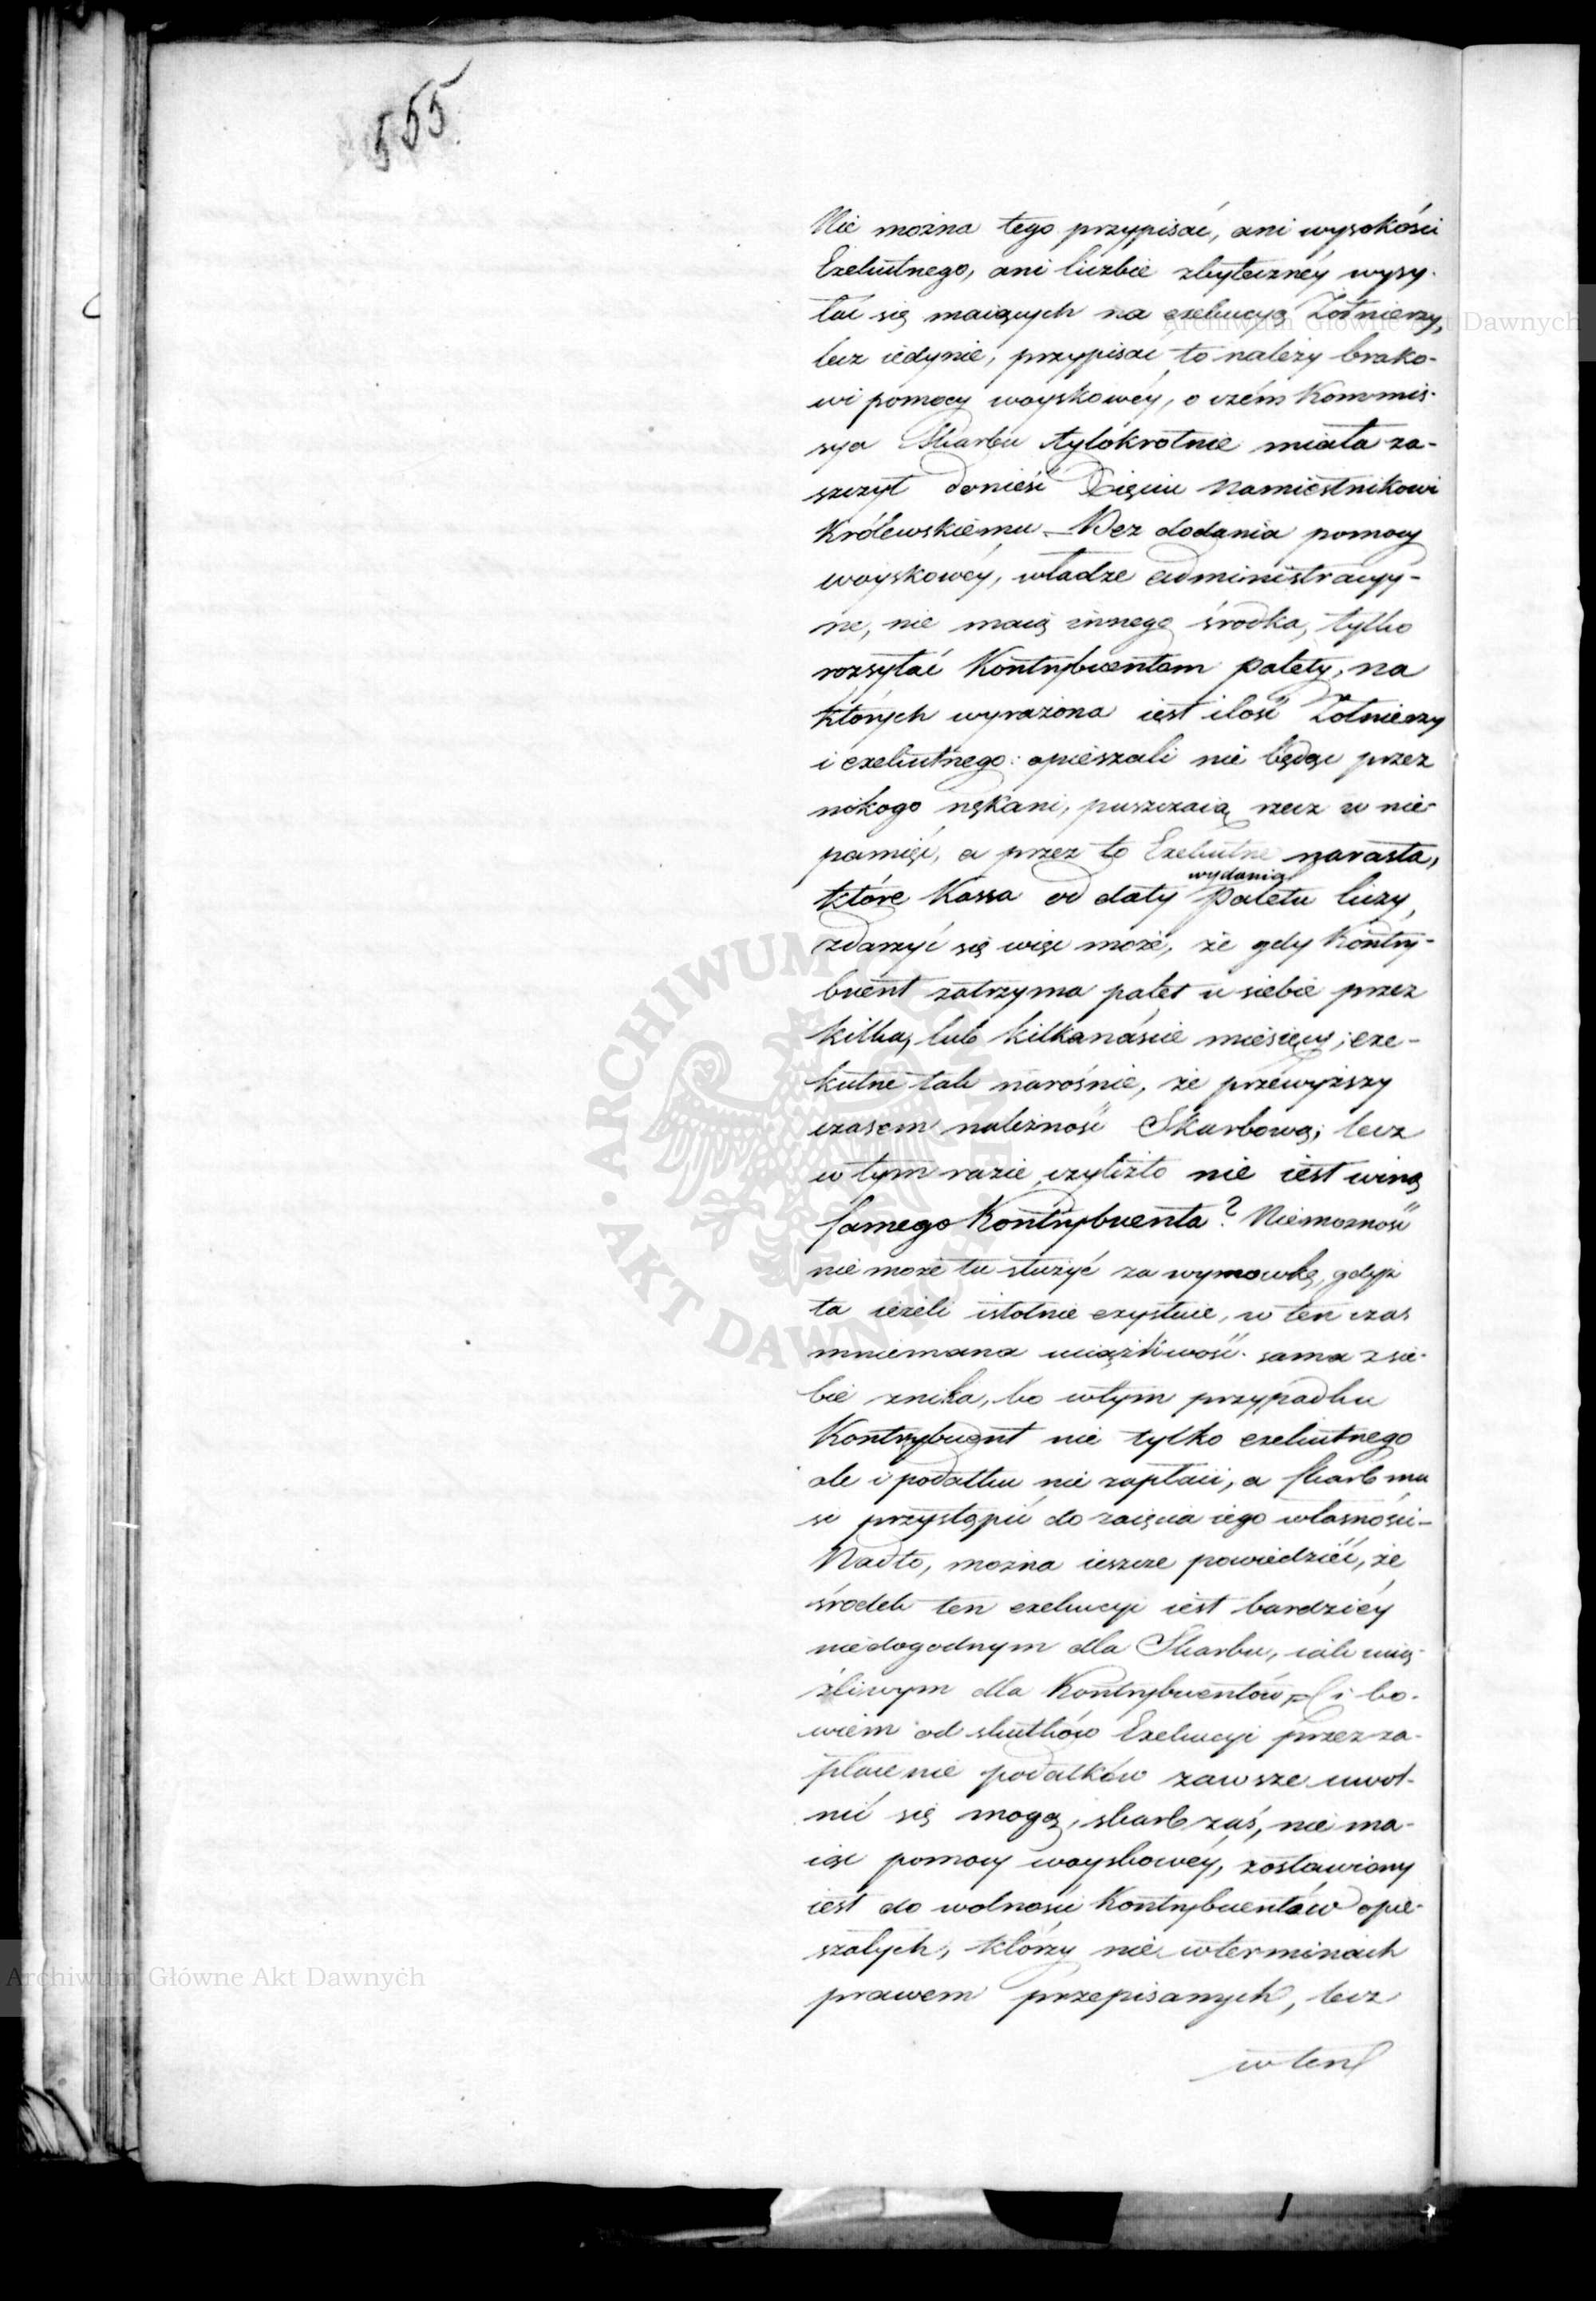 555.
Nie można tego przypisać, ani wysokości
Exekutnego, ani liczbie zbyteczney wysy-
łać się maiących na exekucyą Żołnierzy,
lecz iedynie, przypisać to należy brako-
wi pomocy woyskowéy, o czém Kommis-
sya Skarbu tylokrotnie miała za-
szczyt donieść Xięciu Namiestnikowi
Królewskiemu. — Bez dodania pomocy
woyskowéy, władze administracyy-
ne, nie maią innego środka, tylko
rozsyłać Kontrybuentom palety, na
których wyrażona iest ilość Żołnierzy
i exekutnego: opieszali nie będąc przez
nikogo nękani, puszczaią rzecz w nie-
pamięć, a przez to Exekutne narasta,
które Kassa od daty wydania paletu liczy,
zdarzyć się więc może, że gdy Kontry-
buent zatrzyma palet u siebie przez
kilka, lub kilkanaście miesięcy; exe-
kutne tak narośnie, że przewyższy
czasem należność Skarbową; lecz
w tym razie czyliżto nie iest winą
samego Kontrybuenta? Niemożność
nie może tu służyć za wymowkę, gdyż
ta ieżeli istotnie exystuie, w ten czas
mniemana uciążliwość sama z sie-
bie znika, bo w tym przypadku
Kontrybuent nie tylko exekutnego
ale i podatku nie zapłaci, a skarb mu
si przystąpić do zaięcia iego własności –
Nadto, można ieszcze powiedzieć, że
środek ten exekucyi iest bardziéy
niedogodnym dla Skarbu, iak ucią-
żliwym dla Kontrybuentów, Ci bo-
wiem od skutków Exekucyi przez za-
płacenie podatków zawsze uwol-
nić się mogą, skarb zaś, nie ma-
iąc pomocy woyskowéy, zostawiony
iest do wolności Kontrybuentów opie-
szałych, którzy nie w terminach
prawem przepisanych, lecz
w ten
Archiwum Główne Akt Dawnych
Archiwum Główne Akt Dawnych